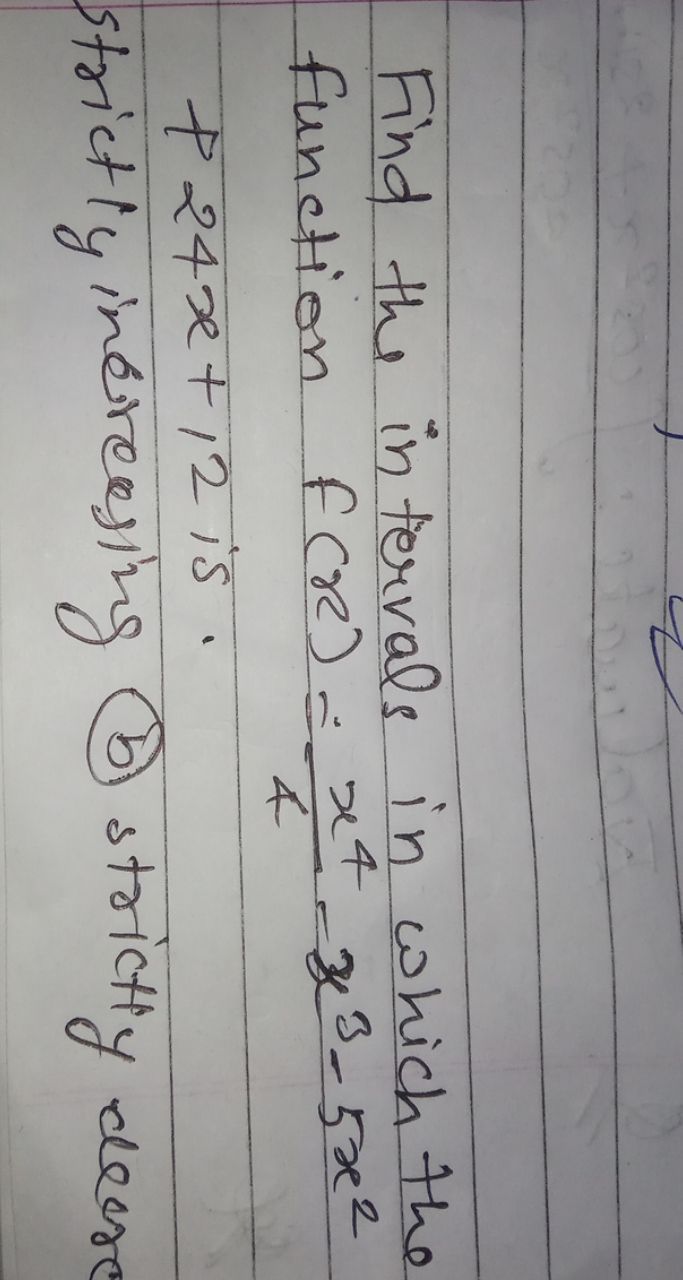 Find the intervals in which the
function f(x) = x⁴/4 - x³ - 5x²
+ 24x + 12 is.
strictly increasing (b) strictly decre